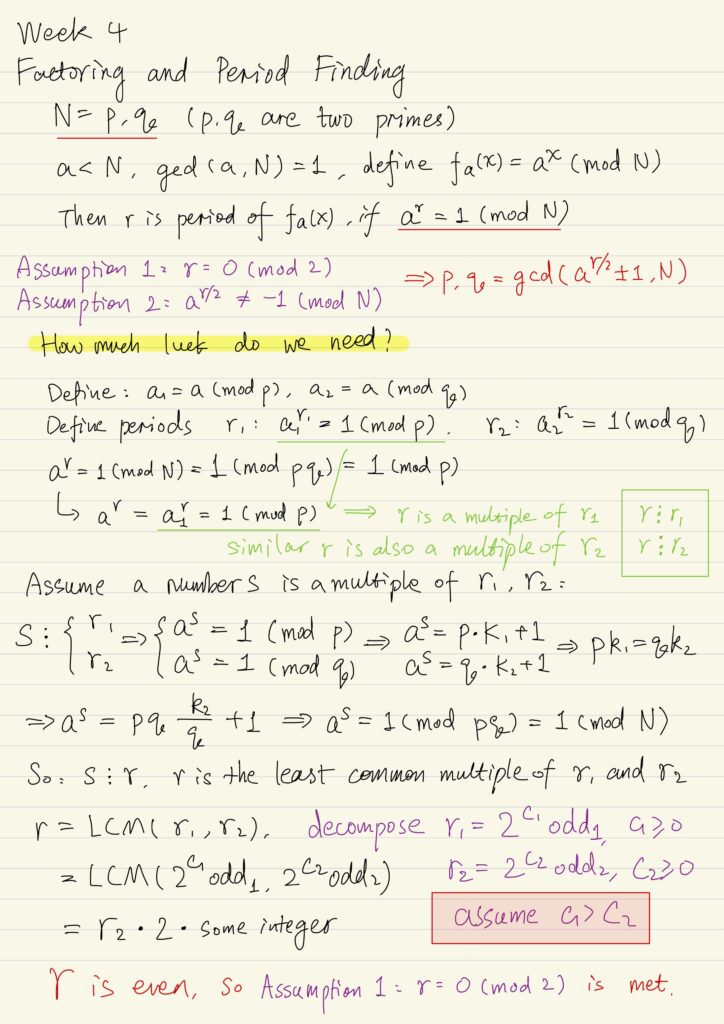 Week 4
Factoring and Period Finding
N = p·q (p.q are two primes)
a < N, gcd(a, N) = 1, define fₐ(x) = aˣ (mod N)
Then r is period of fₐ(x), if aʳ = 1 (mod N)
Assumption 1: r = 0 (mod 2)
Assumption 2: a^(r/2) ≠ -1 (mod N)
⇒ p, q = gcd(a^(r/2) ± 1, N)
How much luck do we need?
Define: a₁ = a (mod p), a₂ = a (mod q)
Define periods r₁: a₁^r₁ = 1 (mod p). r₂: a₂^r₂ = 1 (mod q)
aʳ = 1 (mod N) = 1 (mod pq) = 1 (mod p)
↳ aʳ = a₁ʳ = 1 (mod p) ⇒ r is a multiple of r₁
similar r is also a multiple of r₂
r ⋮ r₁
r ⋮ r₂
Assume a number S is a multiple of r₁, r₂:
S ⋮ { r₁ ⇒ { aˢ = 1 (mod p) ⇒ aˢ = p·k₁+1 ⇒ pk₁ = qk₂
r₂ aˢ = 1 (mod q) aˢ = q·k₂+1
⇒ aˢ = pq k₂/q + 1 ⇒ aˢ = 1 (mod pq) = 1 (mod N)
So: S ⋮ r, r is the least common multiple of r₁ and r₂
r = LCM(r₁, r₂), decompose r₁ = 2^C₁ odd₁, C₁ ≥ 0
= LCM(2^C₁ odd₁, 2^C₂ odd₂) r₂ = 2^C₂ odd₂, C₂ ≥ 0
= r₂ · 2 · some integer
assume C₁ > C₂
r is even, so Assumption 1: r = 0 (mod 2) is met.